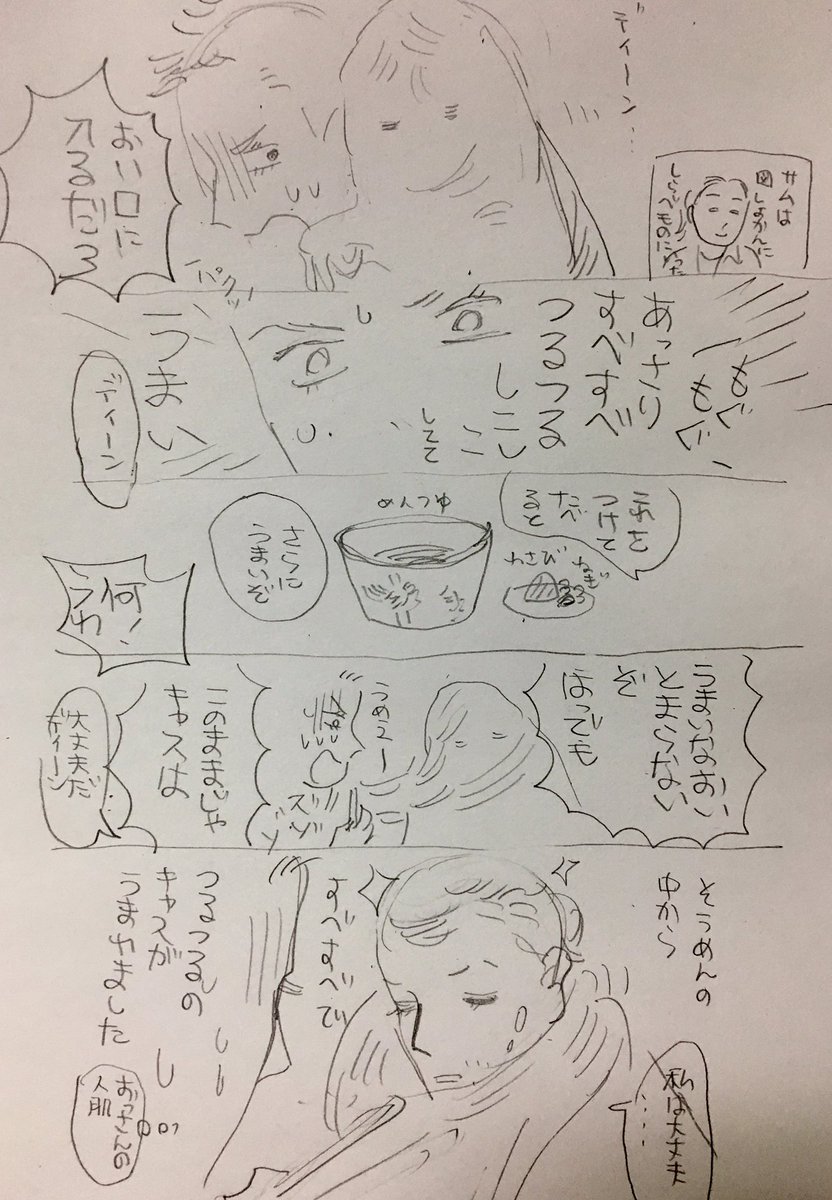 ディーン…
サムは
図しょかんに
しらべものにいった
おい口に
入るだろ
パクッ
もぐ
もぐ
あっさり
すべすべ
つるつる
しこし
こ
してて
うまい
ディーン
これを
つけて
たべ
ると
わさび
ねぎ
めんつゆ
さらに
うまいぞ
何!
うわ
うまいなおい
とまらない
ぞ
ほっても
うめえー
ズゾ
ゾ
このままじゃ
キャスは
大丈夫だ
ディーン
そうめんの
中から
私は大丈夫
……
すべすべで
つるつるの
キャスが
うまれました
おっさんの
人肌